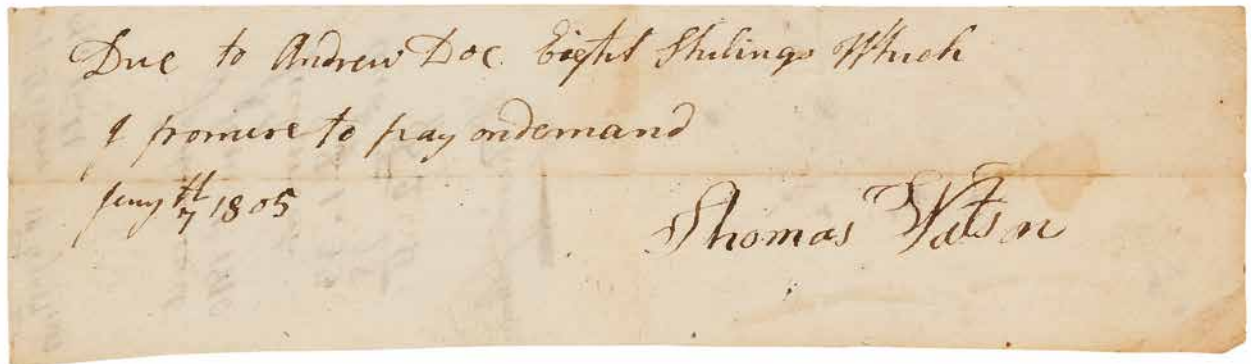 Due to Andrew Doe Eight Shilings Which
I promise to pay on demand
Jany 7th 1805
Thomas Watson